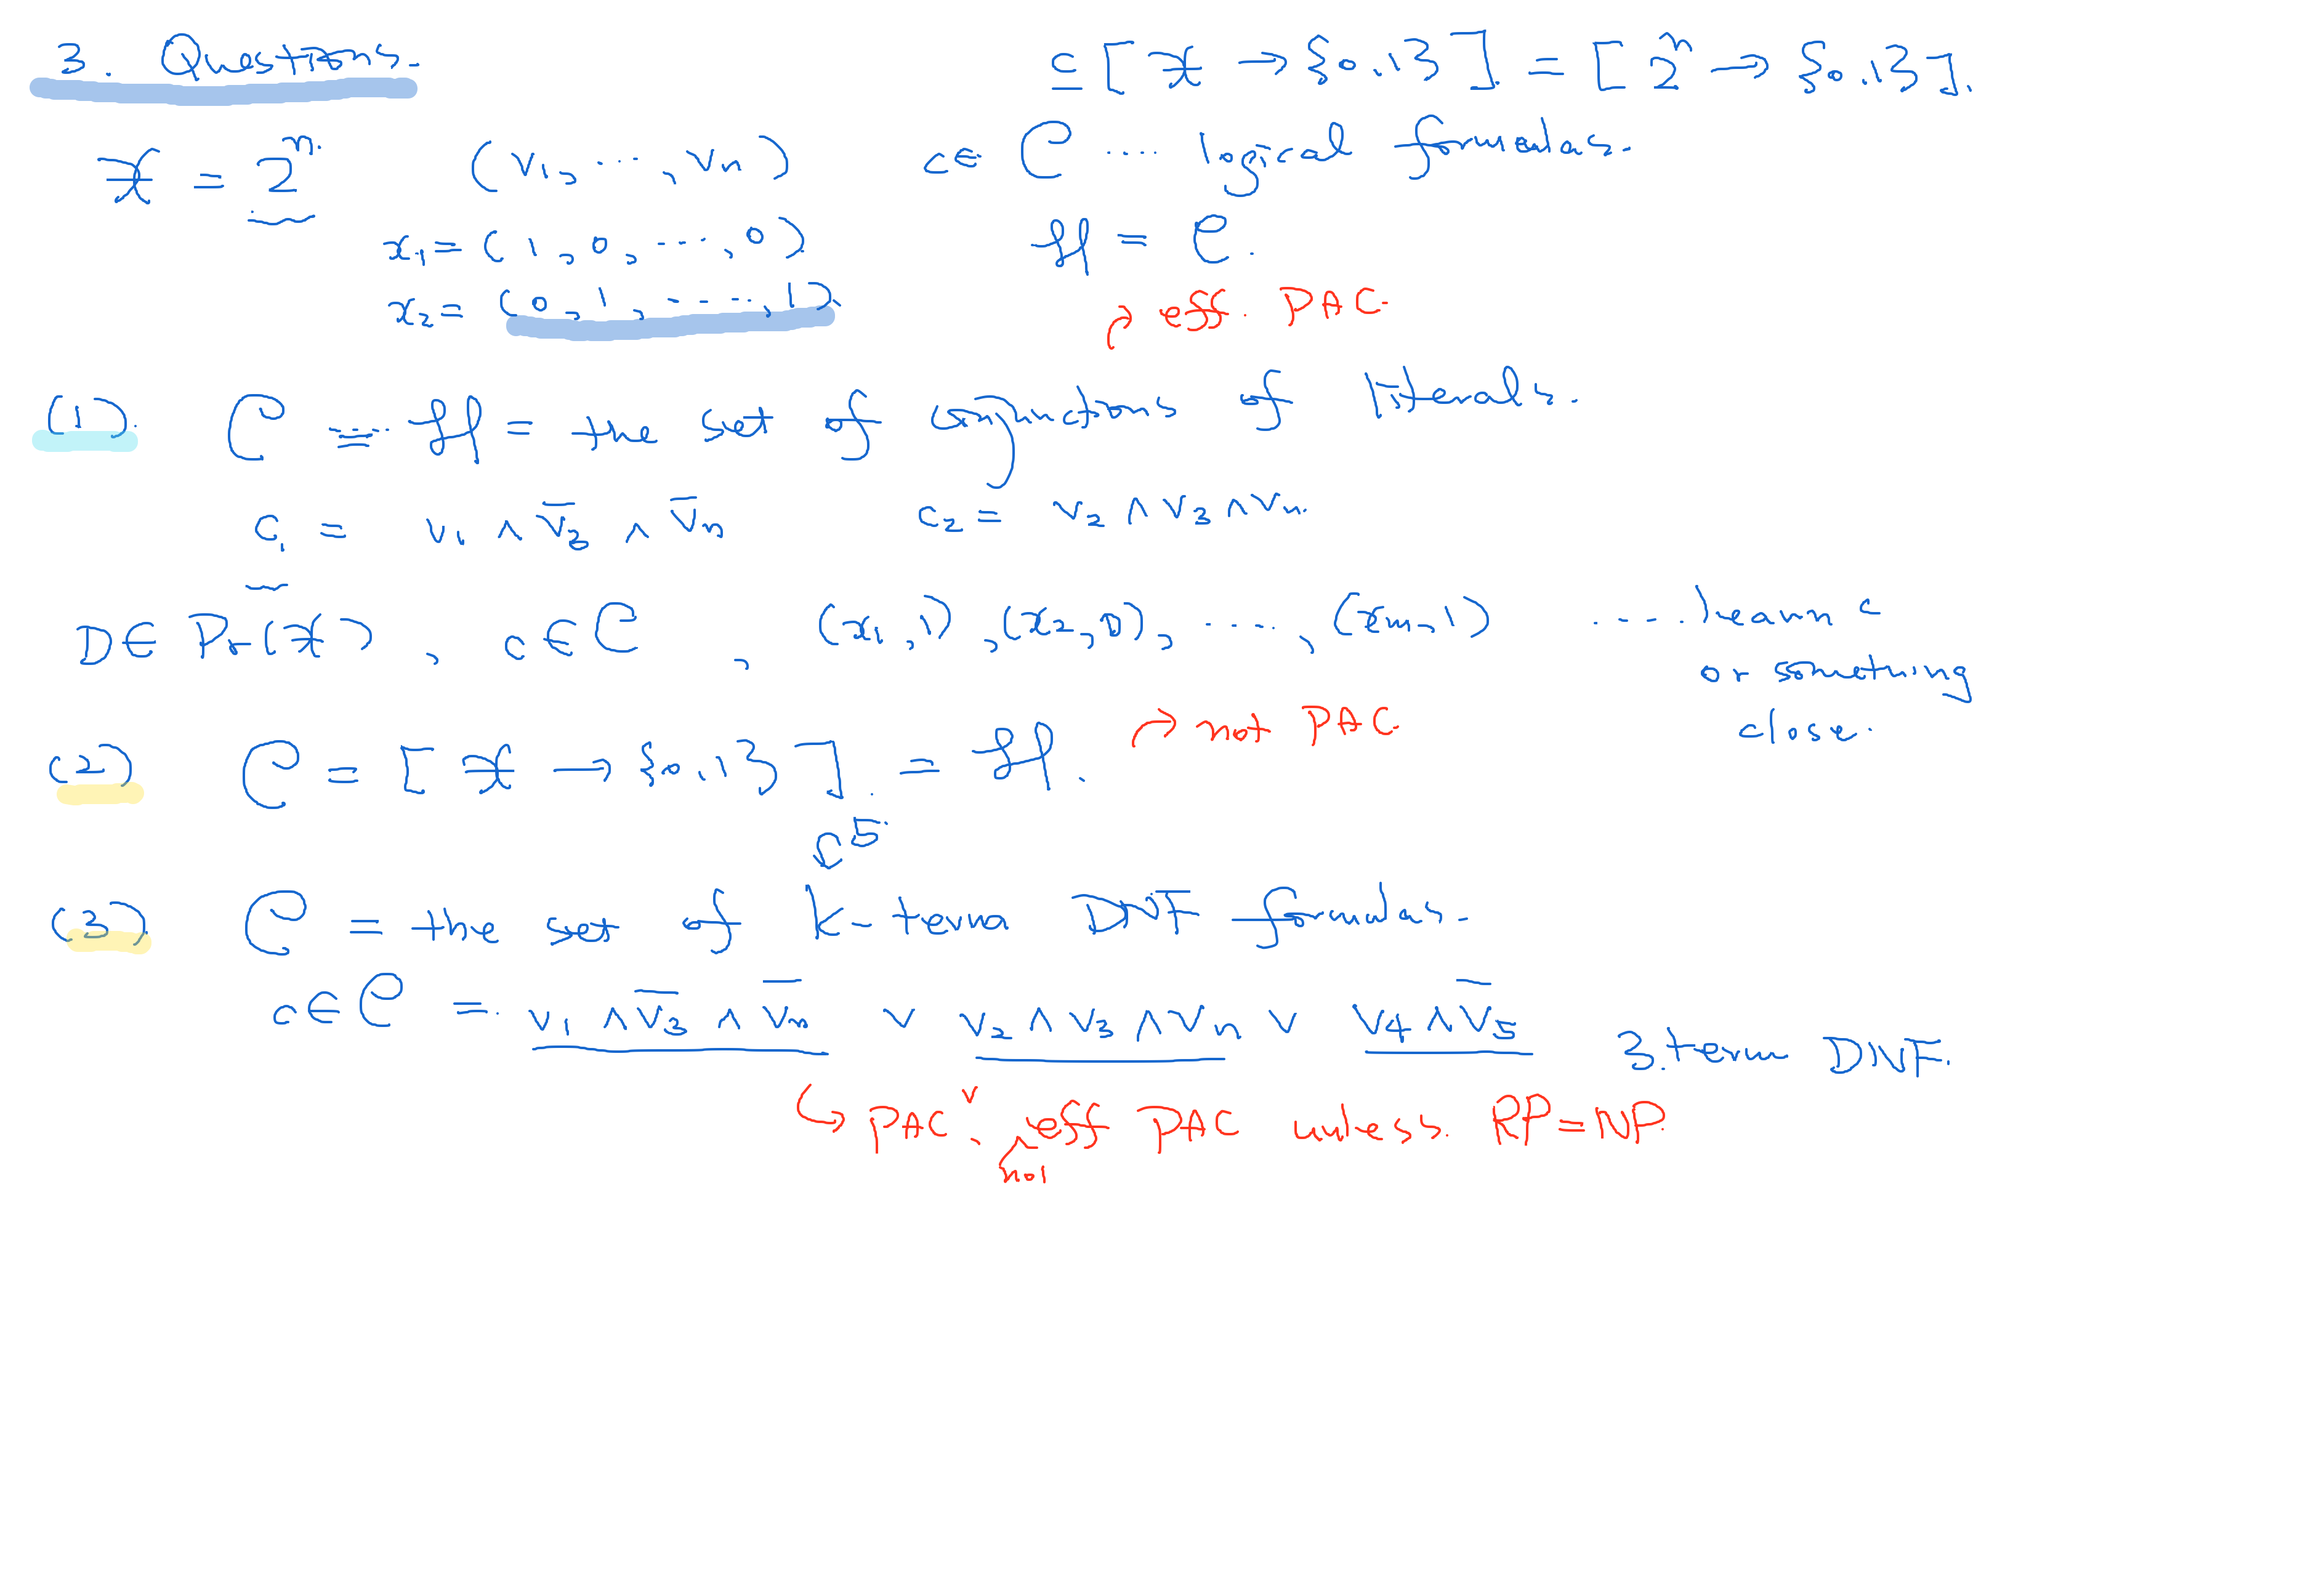 3. Questions.
⊆ [𝒳 → {0,1}] = [2ⁿ → {0,1}].
𝒳 = 2ⁿ (v₁, ⋯, vₙ) c∈ C ⋯ logical formulas.
x₁ = (1, 0, ⋯, 0) H = C.
x₂ = (0, 1, ⋯, 1)
→ eff. PAC.
(1). C = H = the set of conjunctions of literals.
c₁ = v₁ ∧ v̄₃ ∧ v̄ₙ c₂ = v₂ ∧ v₃ ∧ vₙ
D ∈ Pr(𝒳), c∈C, (x₁, 1), (x₂, 0), ⋯, (xₘ, 1) ⋯ learn c
or something
close.
→ not PAC.
(2) C = [𝒳 → {0,1}] = H.
5
(3) C = the set of k-term DNF formulas.
c∈C = v₁ ∧ v̄₃ ∧ v̄ₙ ∨ v₂ ∧ v₃ ∧ vₙ ∨ v₄ ∧ v̄₅ 3-term DNF.
↪ PAC, eff PAC unless RP=NP.
not